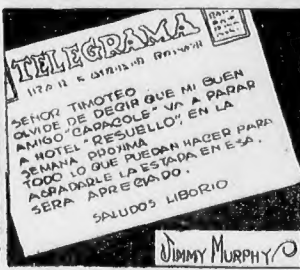 TELEGRAMA
SEÑOR TIMOTEO
OLVIDE DE DECIR QUE MI BUEN
AMIGO "CARACOLE" VA A PARAR
A HOTEL "RESUELLO", EN LA
SEMANA PROXIMA
TODO LO QUE PUEDAN HACER PARA
AGRADARLE LA ESTADA EN ESA.
SERA APRECIADO.
SALUDOS LIBORIO
JIMMY MURPHY